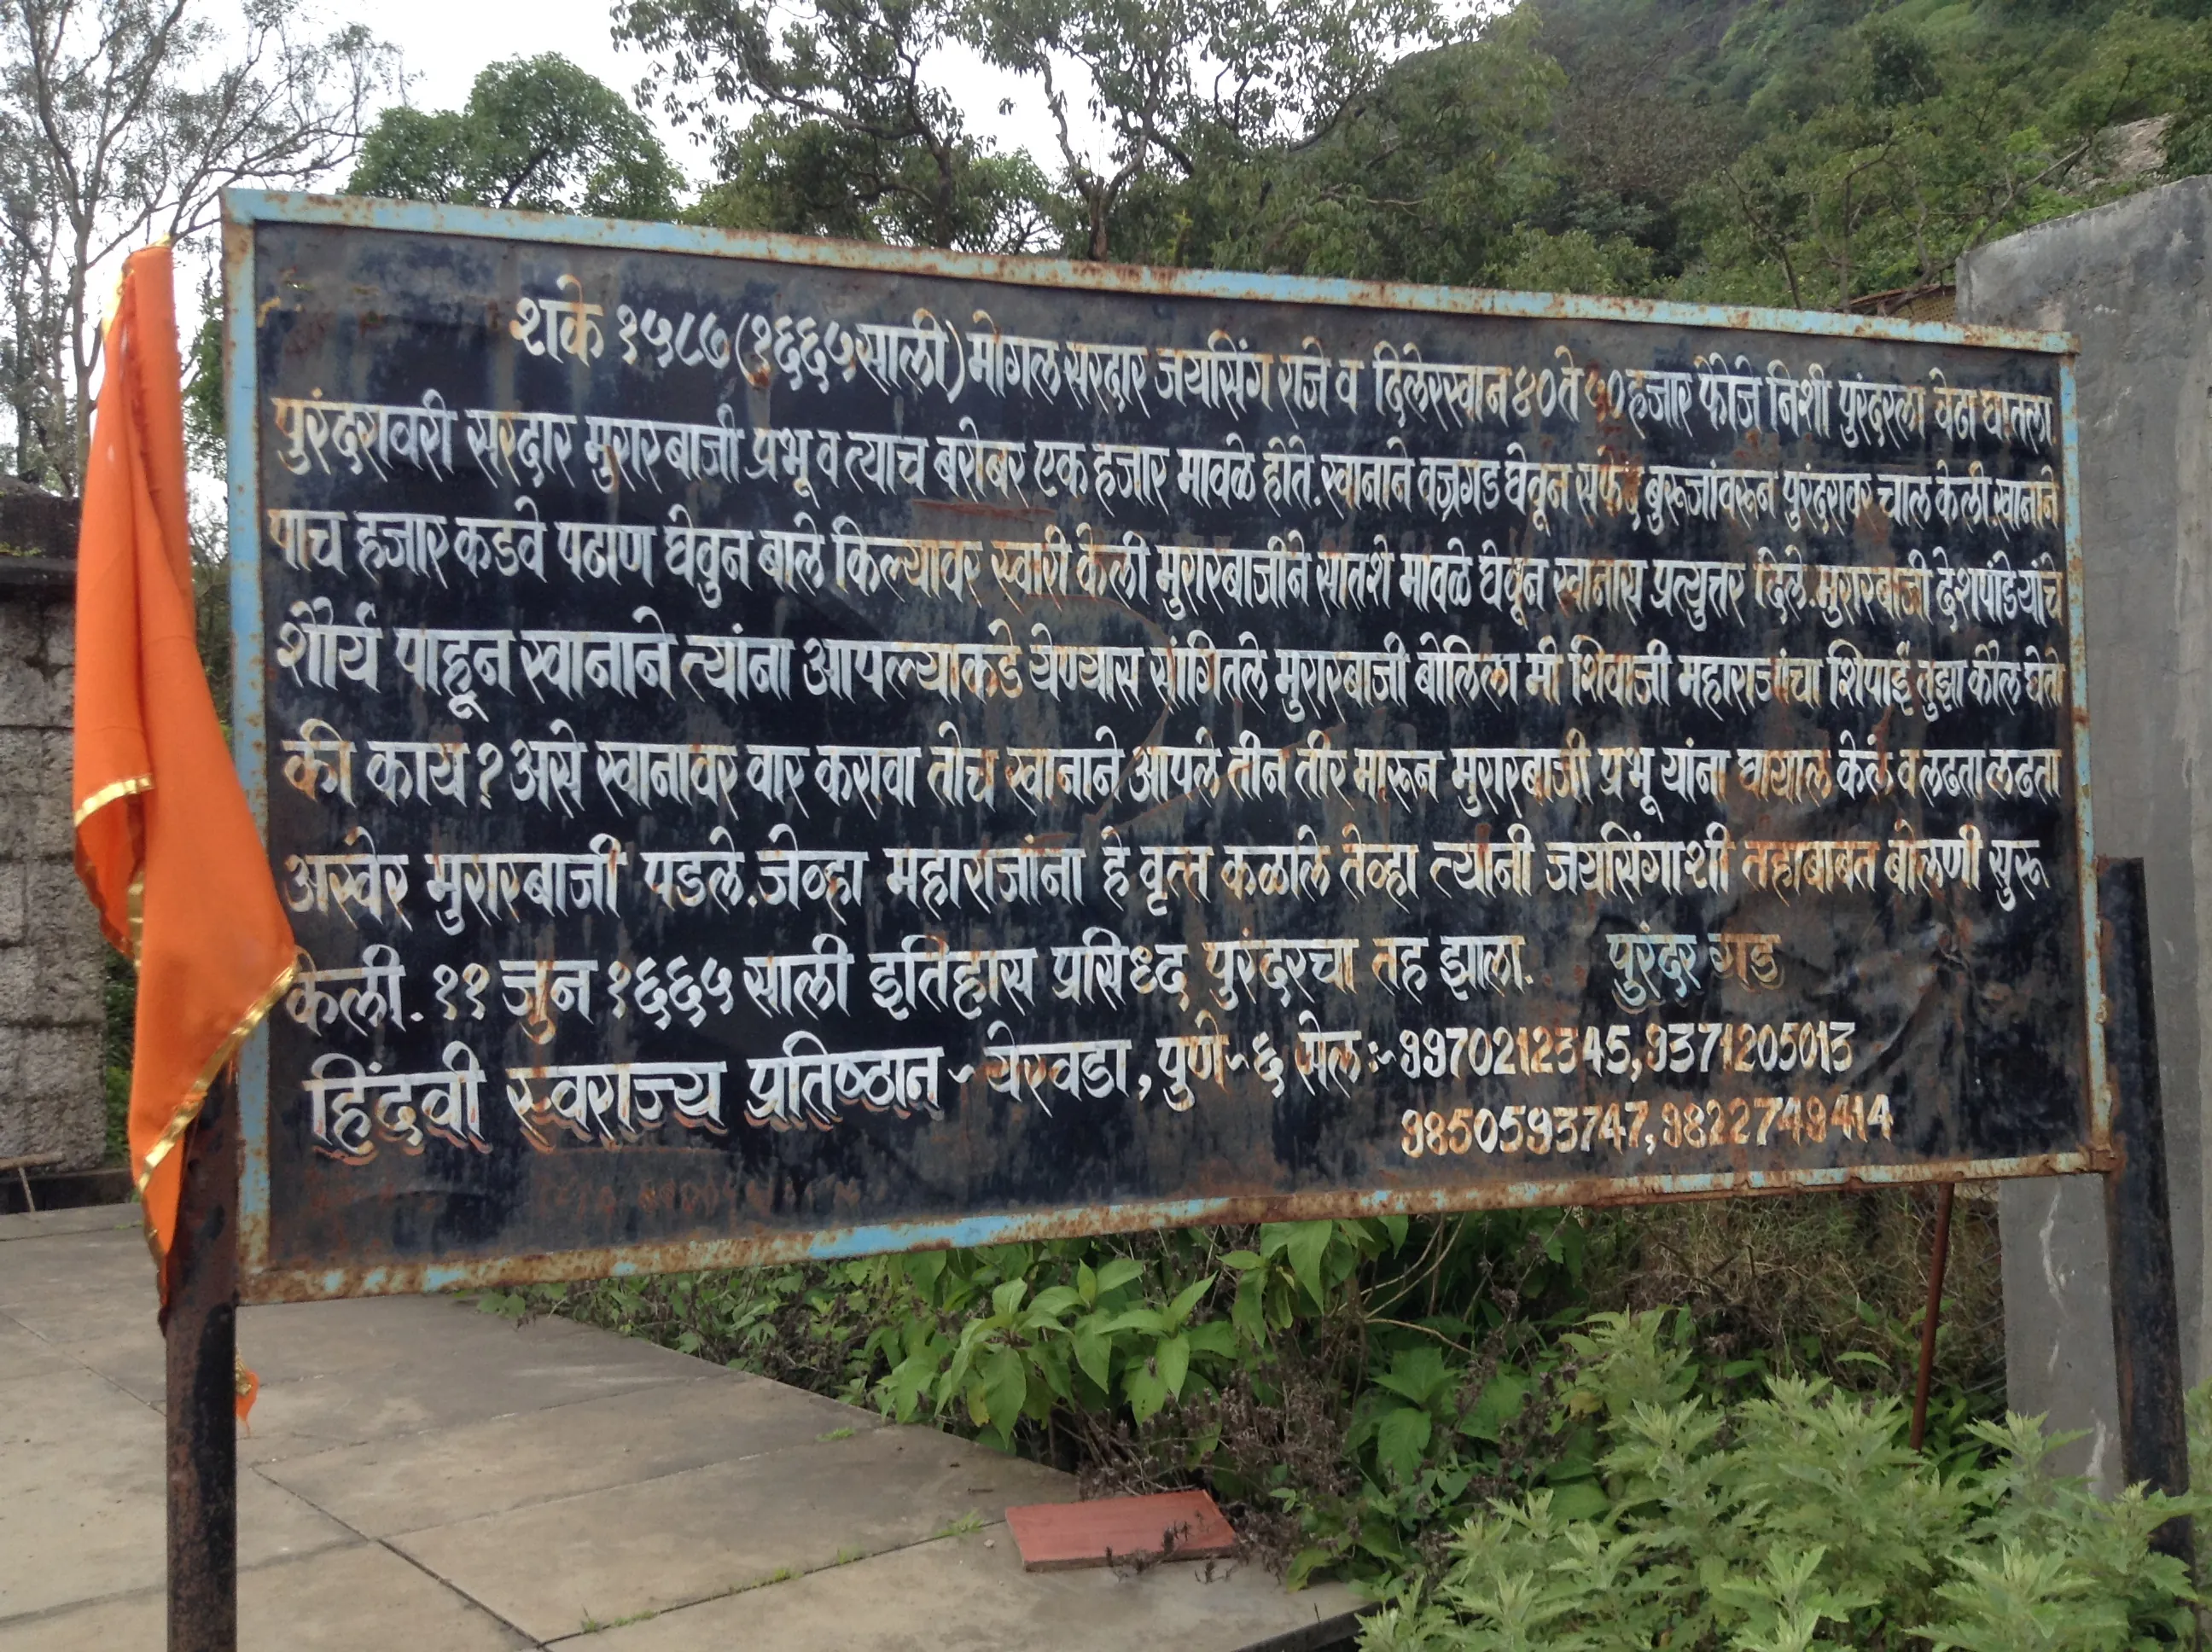 शके १५८७ (१६६५ साली) मोगल सरदार जयसिंग राजे व दिलेरखान ४० ते ५० हजार फौजे निशी पुरंदरला वेढा घातला
पुरंदरावरी सरदार मुरारबाजी प्रभू व त्याच बरोबर एक हजार मावळे होते. खानाने वज्रगड घेवून सफेद बुरूजांवरून पुरंदरावर चाल केली. खानाने
पाच हजार कडवे पठाण घेवुन बाले किल्यावर स्वारी केली मुरारबाजीने सातशे मावळे घेवून खानास प्रत्युत्तर दिले. मुरारबाजी देशपांडेयांचे
शौर्य पाहून खानाने त्यांना आपल्याकडे येण्यास सांगितले मुरारबाजी बोलिला मी शिवाजी महाराजांचा शिपाई तुझा कौल घेतो
की काय? असे खानावर वार करावा तोच खानाने आपले तीन तीर मारून मुरारबाजी प्रभू यांना घायाल केलं व लढता लढता
अखेर मुरारबाजी पडले. जेव्हा महाराजांना हे वृत्त कळाले तेव्हा त्यांनी जयसिंगाशी तहाबाबत बोलणी सुरू
केली. ११ जुन १६६५ साली इतिहास प्रसिध्द पुरंदरचा तह झाला. पुरंदर गड
हिंदवी स्वराज्य प्रतिष्ठान - येरवडा, पुणे-६ सेल :- 9970212345, 9371205013
9850593747, 9822749414